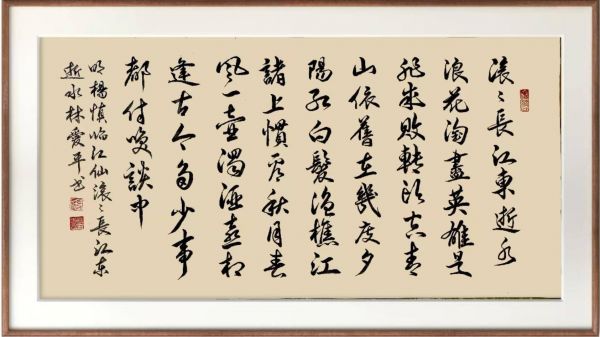 滚〻長江東逝水
浪花淘盡英雄是
非成敗轉頭空青
山依舊在幾度夕
陽紅白髮漁樵江
渚上慣看秋月春
風一壺濁酒喜相
逢古今多少事
都付笑談中
明楊慎臨江仙滚〻長江东
逝水林愛平书